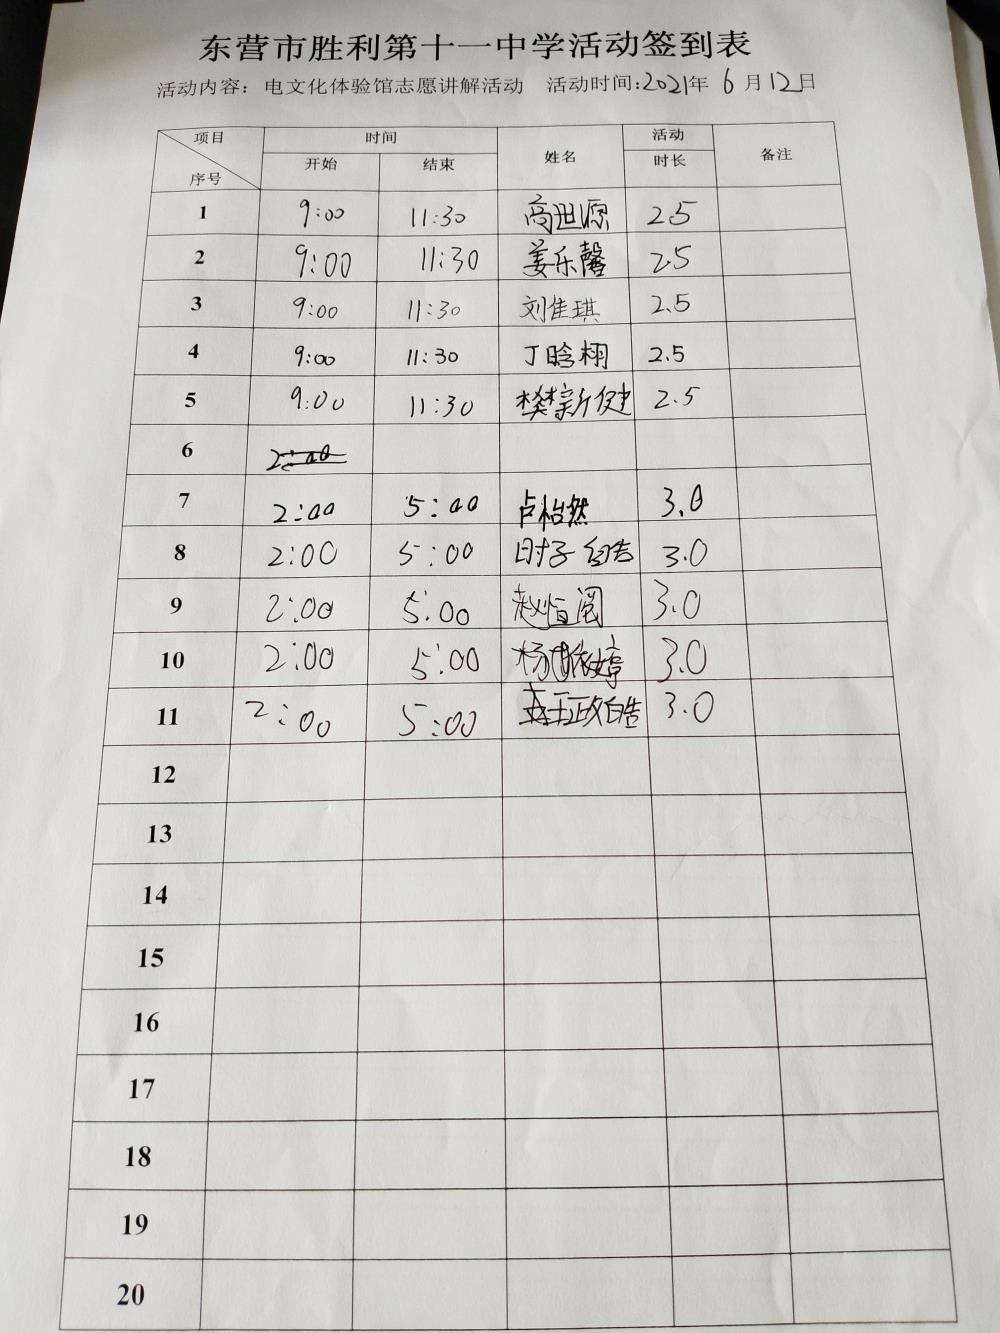 东营市胜利第十一中学活动签到表
活动内容：电文化体验馆志愿讲解活动 活动时间:2021年 6 月 12 日
项目 时间 姓名 活动 备注
序号 开始 结束 时长
1 9:00 11:30 高世源 2.5
2 9:00 11:30 姜乐馨 2.5
3 9:00 11:30 刘佳琪 2.5
4 9:00 11:30 丁晗栩 2.5
5 9:00 11:30 樊新健 2.5
6
7 2:00 5:00 卢怡然 3.0
8 2:00 5:00 时子皓 3.0
9 2:00 5:00 赵恒阅 3.0
10 2:00 5:00 3.0
11 2:00 5:00 3.0
12
13
14
15
16
17
18
19
20